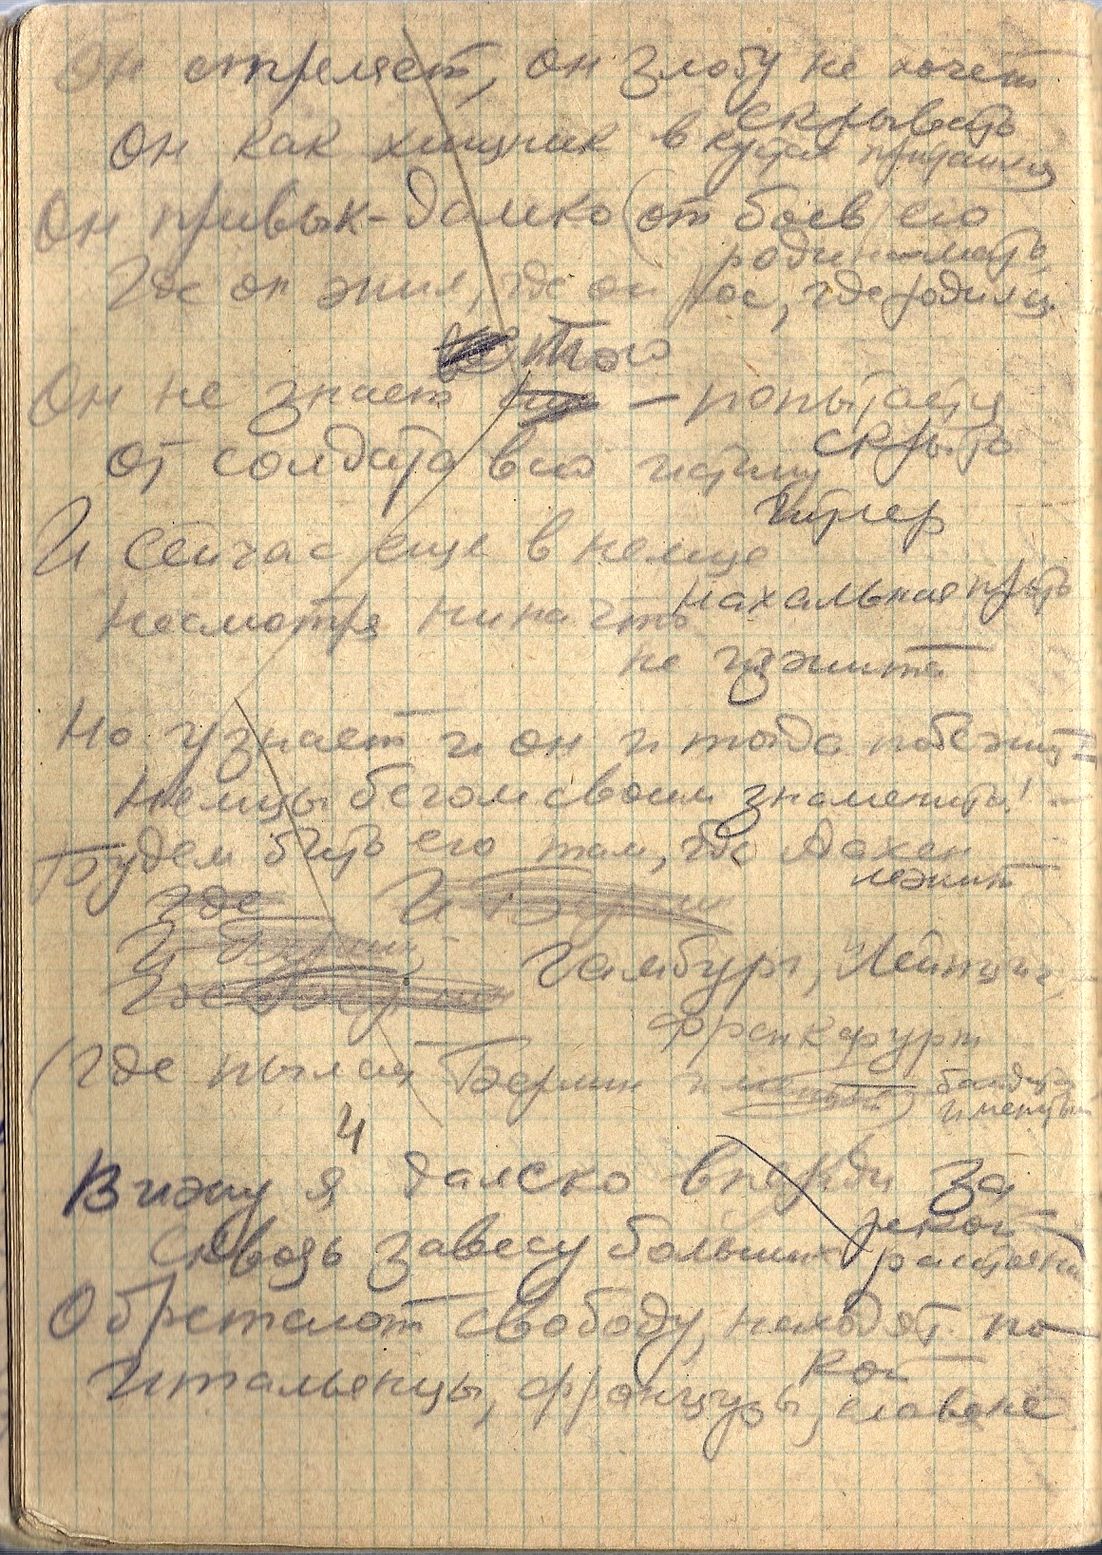 Он стреляет, он злобу не хочет
скрывать
Он как хищник в кустах притаился
Он привык – далеко (от боев) его
родина-мать,
Где он жил, где он рос, где родился.
того
Он не знает – попытается
скрыть
От солдата всю истину
Гитлер
И сейчас еще в немце
нахальная прыть
Несмотря ни на что
не изжита
Но узнает и он и тогда побежит –
Немцы бегом своим знамениты! –
Будем бить его там, где Аахен
лежит
где И Берлин
И Берлин,
Гамбург, Лейпциг,
Франкфурт
(Где пылает Берлин и
именитый
4
Вижу я далеко впереди за
рекой –
Сквозь завесу больших расстояний
Обретают свободу, находят по-
кой
Итальянцы, французы, славяне